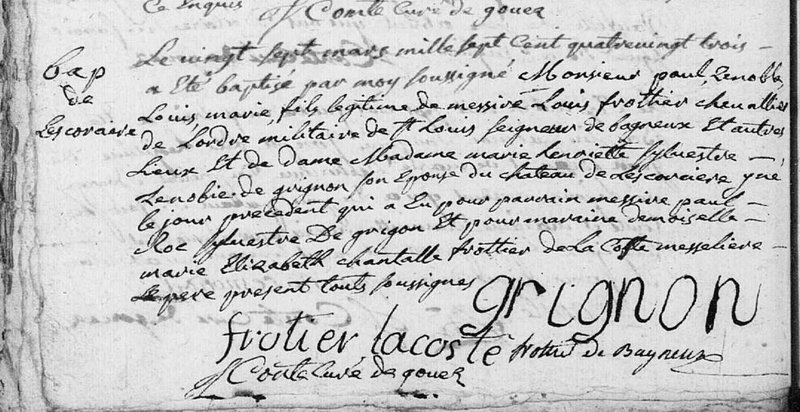 Ce Enquis
Comte Curé de gouex
bap
de
Lescoraire
Le vingt sept mars mille sept Cent quatrevingt trois —
a Eté baptisé par moy soussigné Monsieur paul, Zenobe
Louis, marie, fils legitime de messire Louis frottier chevallier
de Lordre militaire de st Louis seigneur de bagneux Et autres
Lieux Et de Dame Madame marie henriette sylvestre —
Zenobie de grignon son Epouse du chateau de Lescorciere y né
le jour precedent qui a Eu pour parrain messire paul —
Roc sylvestre De grigon Et pour maraine demoiselle —
marie Elizabeth chantalle frottier de la Coste messeliere —
Le pere present touts soussignes
grignon
frotier lacoste frottier de Bagneux
Comte Curé de gouex